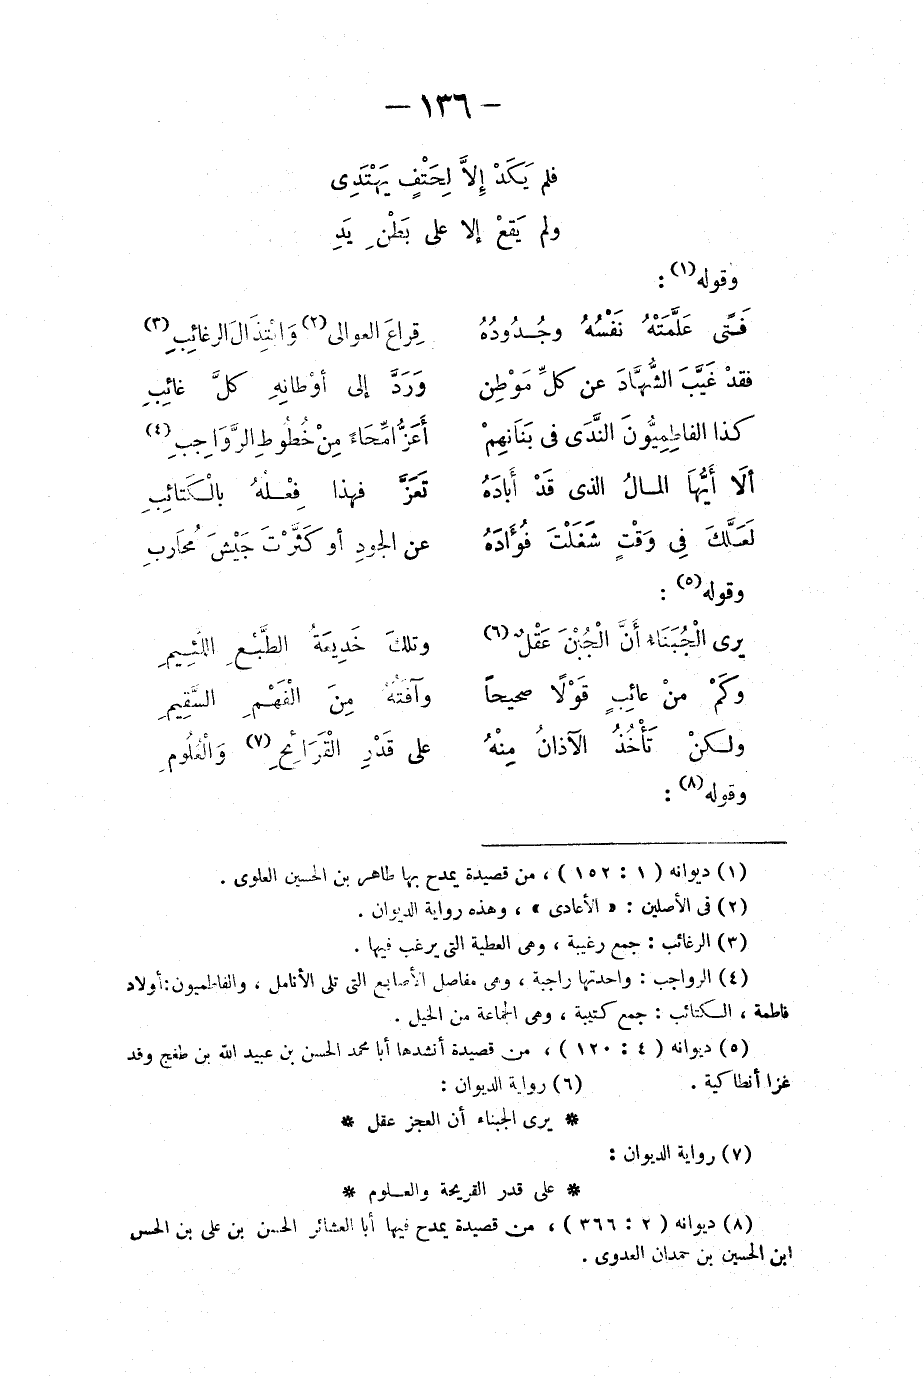 — ١٣٦ —
فلم يَكَدْ إِلاَّ لِحَتْفٍ يَهْتَدِى
ولم يَقَعْ إلا على بَطْنِ يَدِ
وقوله(١) :
فَتًى عَلَّمَتْهُ نَفْسُهُ وجُدُودُهُ قِراعَ العوالى(٢) وَابْتِذَالَ الرغائِبِ(٣)
فقدْ غَيَّبَ الشُّهَّادَ عن كلِّ مَوْطِنٍ وَرَدَّ إلى أوْطانِهِ كلَّ غائِبِ
كذا الفاطِمِيُّونَ النَّدَى فى بَنَانِهِمْ أَعَزُّ امِّحَاءً مِنْ خُطُوطِ الرَّوَاجِبِ(٤)
ألَا أَيُّهَا المالُ الذى قَدْ أَبادَهُ تَعَزَّ فهذا فِعْلُهُ بالْكَتائِبِ
لَعَلَّكَ فِى وَقْتٍ شَغَلْتَ فُؤَادَهُ عن الجودِ أو كَثَّرْتَ جَيْشَ مُحَارِبِ
وقوله(٥) :
يرى الْجُبَنَاءُ أَنَّ الْجُبْنَ عَقْلٌ(٦) وتلكَ خَدِيعَةُ الطَّبْعِ اللئِيمِ
وكَمْ منْ عائِبٍ قَوْلًا صحيحاً وآفَتُهُ مِنَ الْفَهْمِ السَّقِيمِ
ولكنْ تَأْخُذُ الآذانُ مِنْهُ على قَدْرِ الْقَرَائِحِ(٧) وَالْعُلُومِ
وقوله(٨) :
(١) ديوانه ( ١ : ١٥٢ ) ، من قصيدة يمدح بها طاهر بن الحسين العلوى .
(٢) فى الأصلين : « الأعادى » ، وهذه رواية الديوان .
(٣) الرغائب : جمع رغيبة ، وهى العطية التى يرغب فيها .
(٤) الرواجب : واحدتها راجبة ، وهى مفاصل الأصابع التى تلى الأنامل ، والفاطميون: أولاد
فاطمة ، الكتائب : جمع كتيبة ، وهى الجماعة من الخيل .
(٥) ديوانه ( ٤ : ١٢٠ ) ، من قصيدة أنشدها أبا محمد الحسن بن عبيد الله بن طغج وقد
غزا أنطاكية . (٦) رواية الديوان :
* يرى الجبناء أن العجز عقل *
(٧) رواية الديوان :
* على قدر القريحة والعلوم *
(٨) ديوانه ( ٢ : ٣٦٦ ) ، من قصيدة يمدح فيها أبا العشائر الحسن بن على بن الحسن
ابن الحسين بن حمدان العدوى .